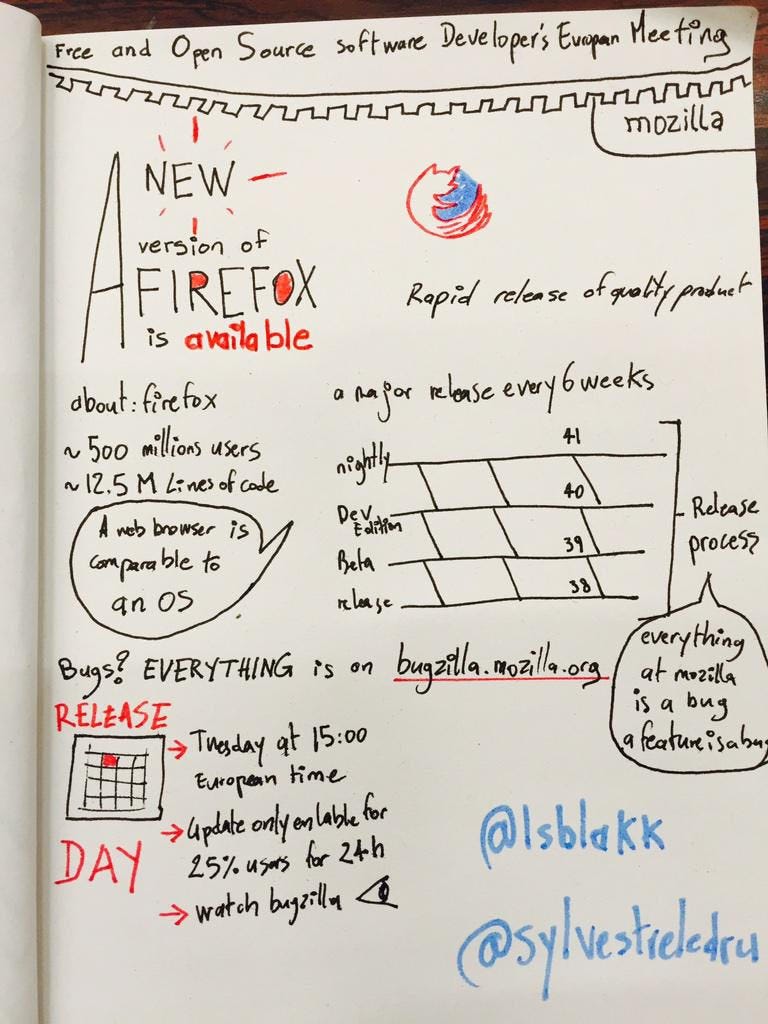 Free and Open Source software Developer's European Meeting
mozilla
A NEW
version of
FIREFOX
is available
Rapid release of quality product
about: firefox
~ 500 millions users
~ 12.5 M Lines of code
A web browser is
comparable to
an OS
a major release every 6 weeks
41
nightly
40
Dev
Edition
39
Beta
38
release
Release
process
everything
at mozilla
is a bug
a feature is a bug
Bugs? EVERYTHING is on bugzilla.mozilla.org
RELEASE
DAY
→ Tuesday at 15:00
European time
→ update only enlable for
25% users for 24h
→ watch bugzilla
@lsblakk
@sylvestreledru